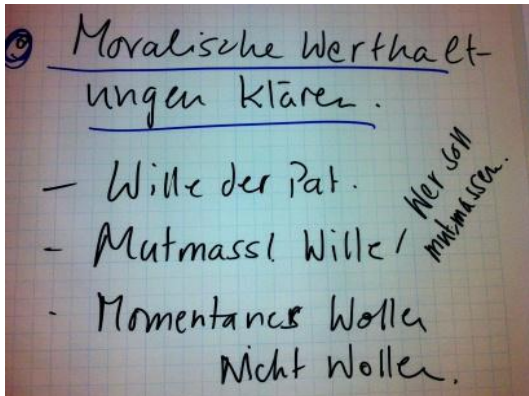 Moralische Werthalt-
ungen klären.
- Wille der Pat.
- Mutmassl Wille /
Wer soll
mutmassen.
- Momentanes Wollen
Nicht Wollen.